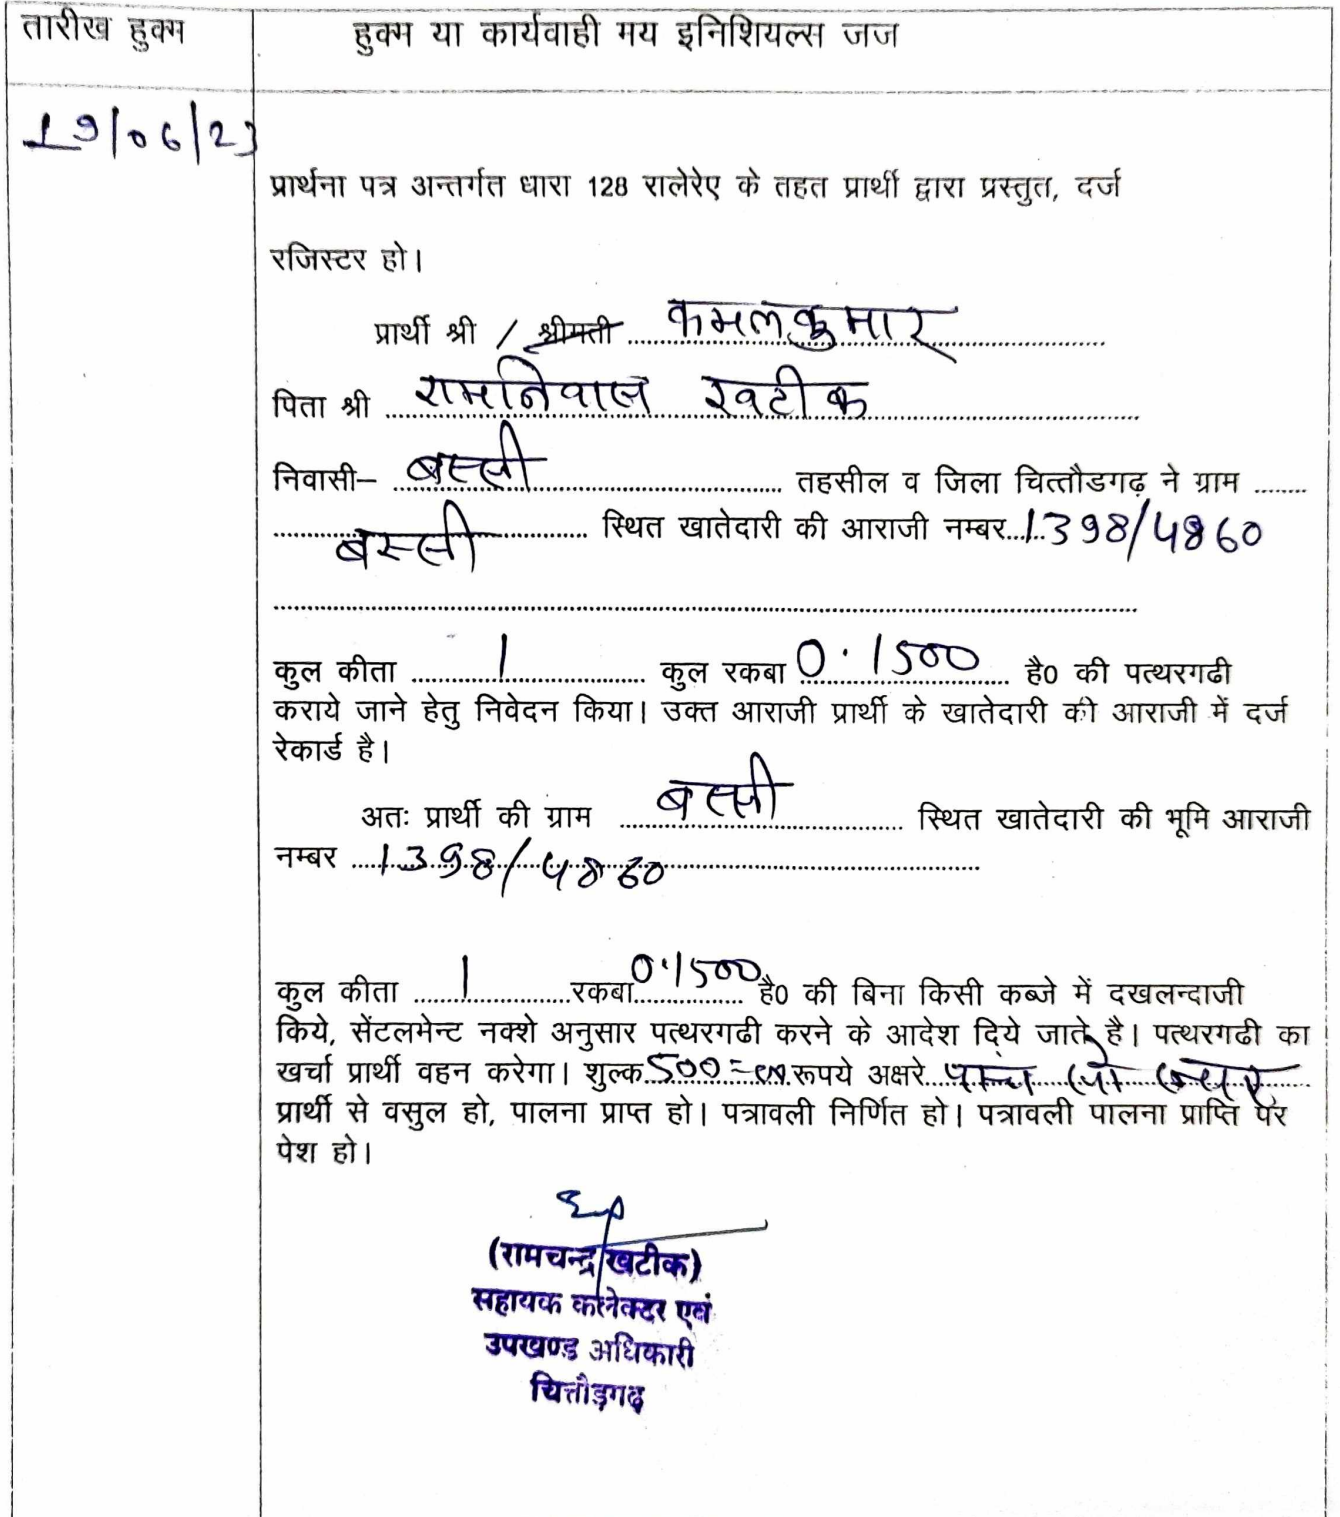 तारीख हुक्म
हुक्म या कार्यवाही मय इनिशियल्स जज
19/06/23
प्रार्थना पत्र अन्तर्गत धारा 128 रालेरेए के तहत प्रार्थी द्वारा प्रस्तुत, दर्ज
रजिस्टर हो।
प्रार्थी श्री / श्रीमती कमल कुमार
पिता श्री रामनिवास खटीक
निवासी– बस्सी तहसील व जिला चित्तौडगढ़ ने ग्राम
बस्सी स्थित खातेदारी की आराजी नम्बर 1398/4860
कुल कीता 1 कुल रकबा 0.1500 है0 की पत्थरगढी
कराये जाने हेतु निवेदन किया। उक्त आराजी प्रार्थी के खातेदारी की आराजी में दर्ज
रेकार्ड है।
अतः प्रार्थी की ग्राम बस्सी स्थित खातेदारी की भूमि आराजी
नम्बर 1398/4860
कुल कीता 1 रकबा 0.1500 है0 की बिना किसी कब्जे में दखलन्दाजी
किये, सेंटलमेन्ट नक्शे अनुसार पत्थरगढी करने के आदेश दिये जाते है। पत्थरगढी का
खर्चा प्रार्थी वहन करेगा। शुल्क 500=00 रूपये अक्षरे पांच सौ
प्रार्थी से वसुल हो, पालना प्राप्त हो। पत्रावली निर्णित हो। पत्रावली पालना प्राप्ति पर
पेश हो।
(रामचन्द्र खटीक)
सहायक कलेक्टर एवं
उपखण्ड अधिकारी
चित्तौड़गढ़